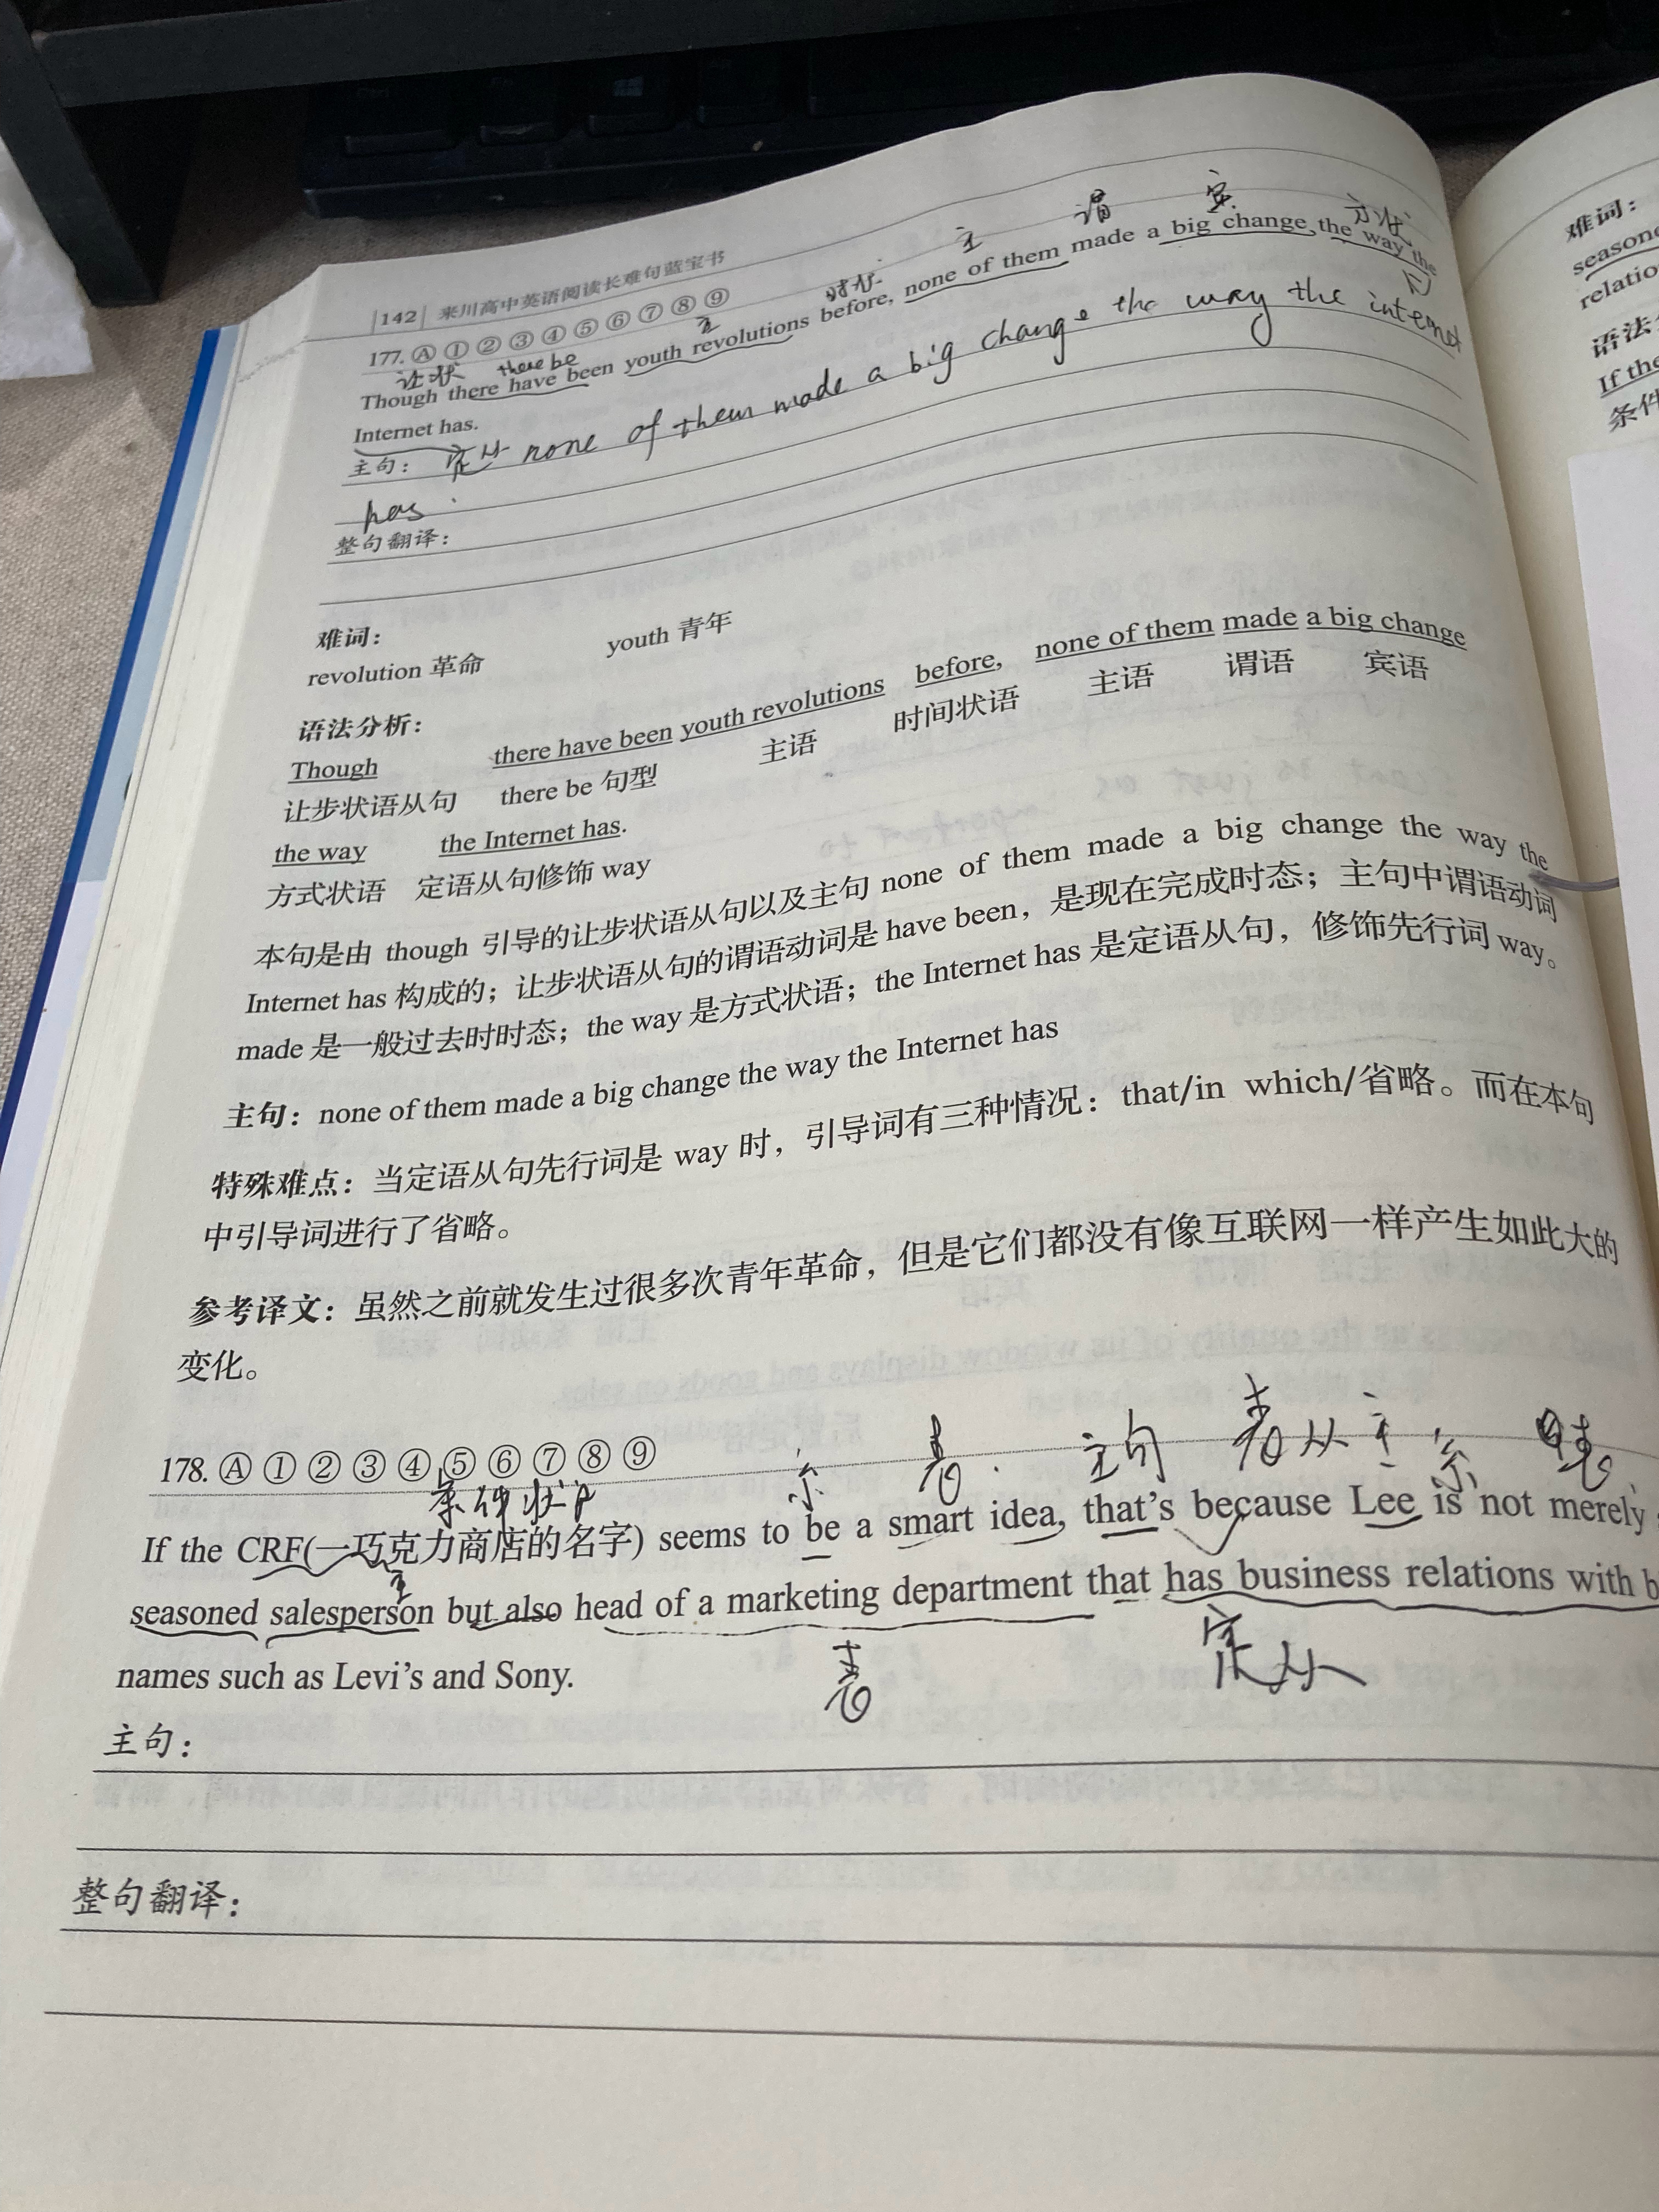 |142| 来川高中英语阅读长难句蓝宝书
177. Ⓐ ① ② ③ ④ ⑤ ⑥ ⑦ ⑧ ⑨
时状 主 谓 宾 方状
让状 there be 主
Though there have been youth revolutions before, none of them made a big change the way the
Internet has.
定从
主句： none of them made a big change the way the internet
has.
整句翻译：
难词：
revolution 革命 youth 青年
语法分析：
Though there have been youth revolutions before, none of them made a big change
让步状语从句 there be 句型 主语 时间状语 主语 谓语 宾语
the way the Internet has.
方式状语 定语从句修饰 way
本句是由 though 引导的让步状语从句以及主句 none of them made a big change the way the
Internet has 构成的；让步状语从句的谓语动词是 have been，是现在完成时态；主句中谓语动词
made 是一般过去时时态；the way 是方式状语；the Internet has 是定语从句，修饰先行词 way。
主句：none of them made a big change the way the Internet has
特殊难点：当定语从句先行词是 way 时，引导词有三种情况：that/in which/省略。而在本句
中引导词进行了省略。
参考译文：虽然之前就发生过很多次青年革命，但是它们都没有像互联网一样产生如此大的
变化。
178. Ⓐ ① ② ③ ④ ⑤ ⑥ ⑦ ⑧ ⑨
条件状 系 表 主句 表从 主 系 表
If the CRF(一巧克力商店的名字) seems to be a smart idea, that's because Lee is not merely
主
seasoned salesperson but also head of a marketing department that has business relations with b
表 定从
names such as Levi's and Sony.
主句：
整句翻译：
难词：
seasone
relatio
语法
If the
条件